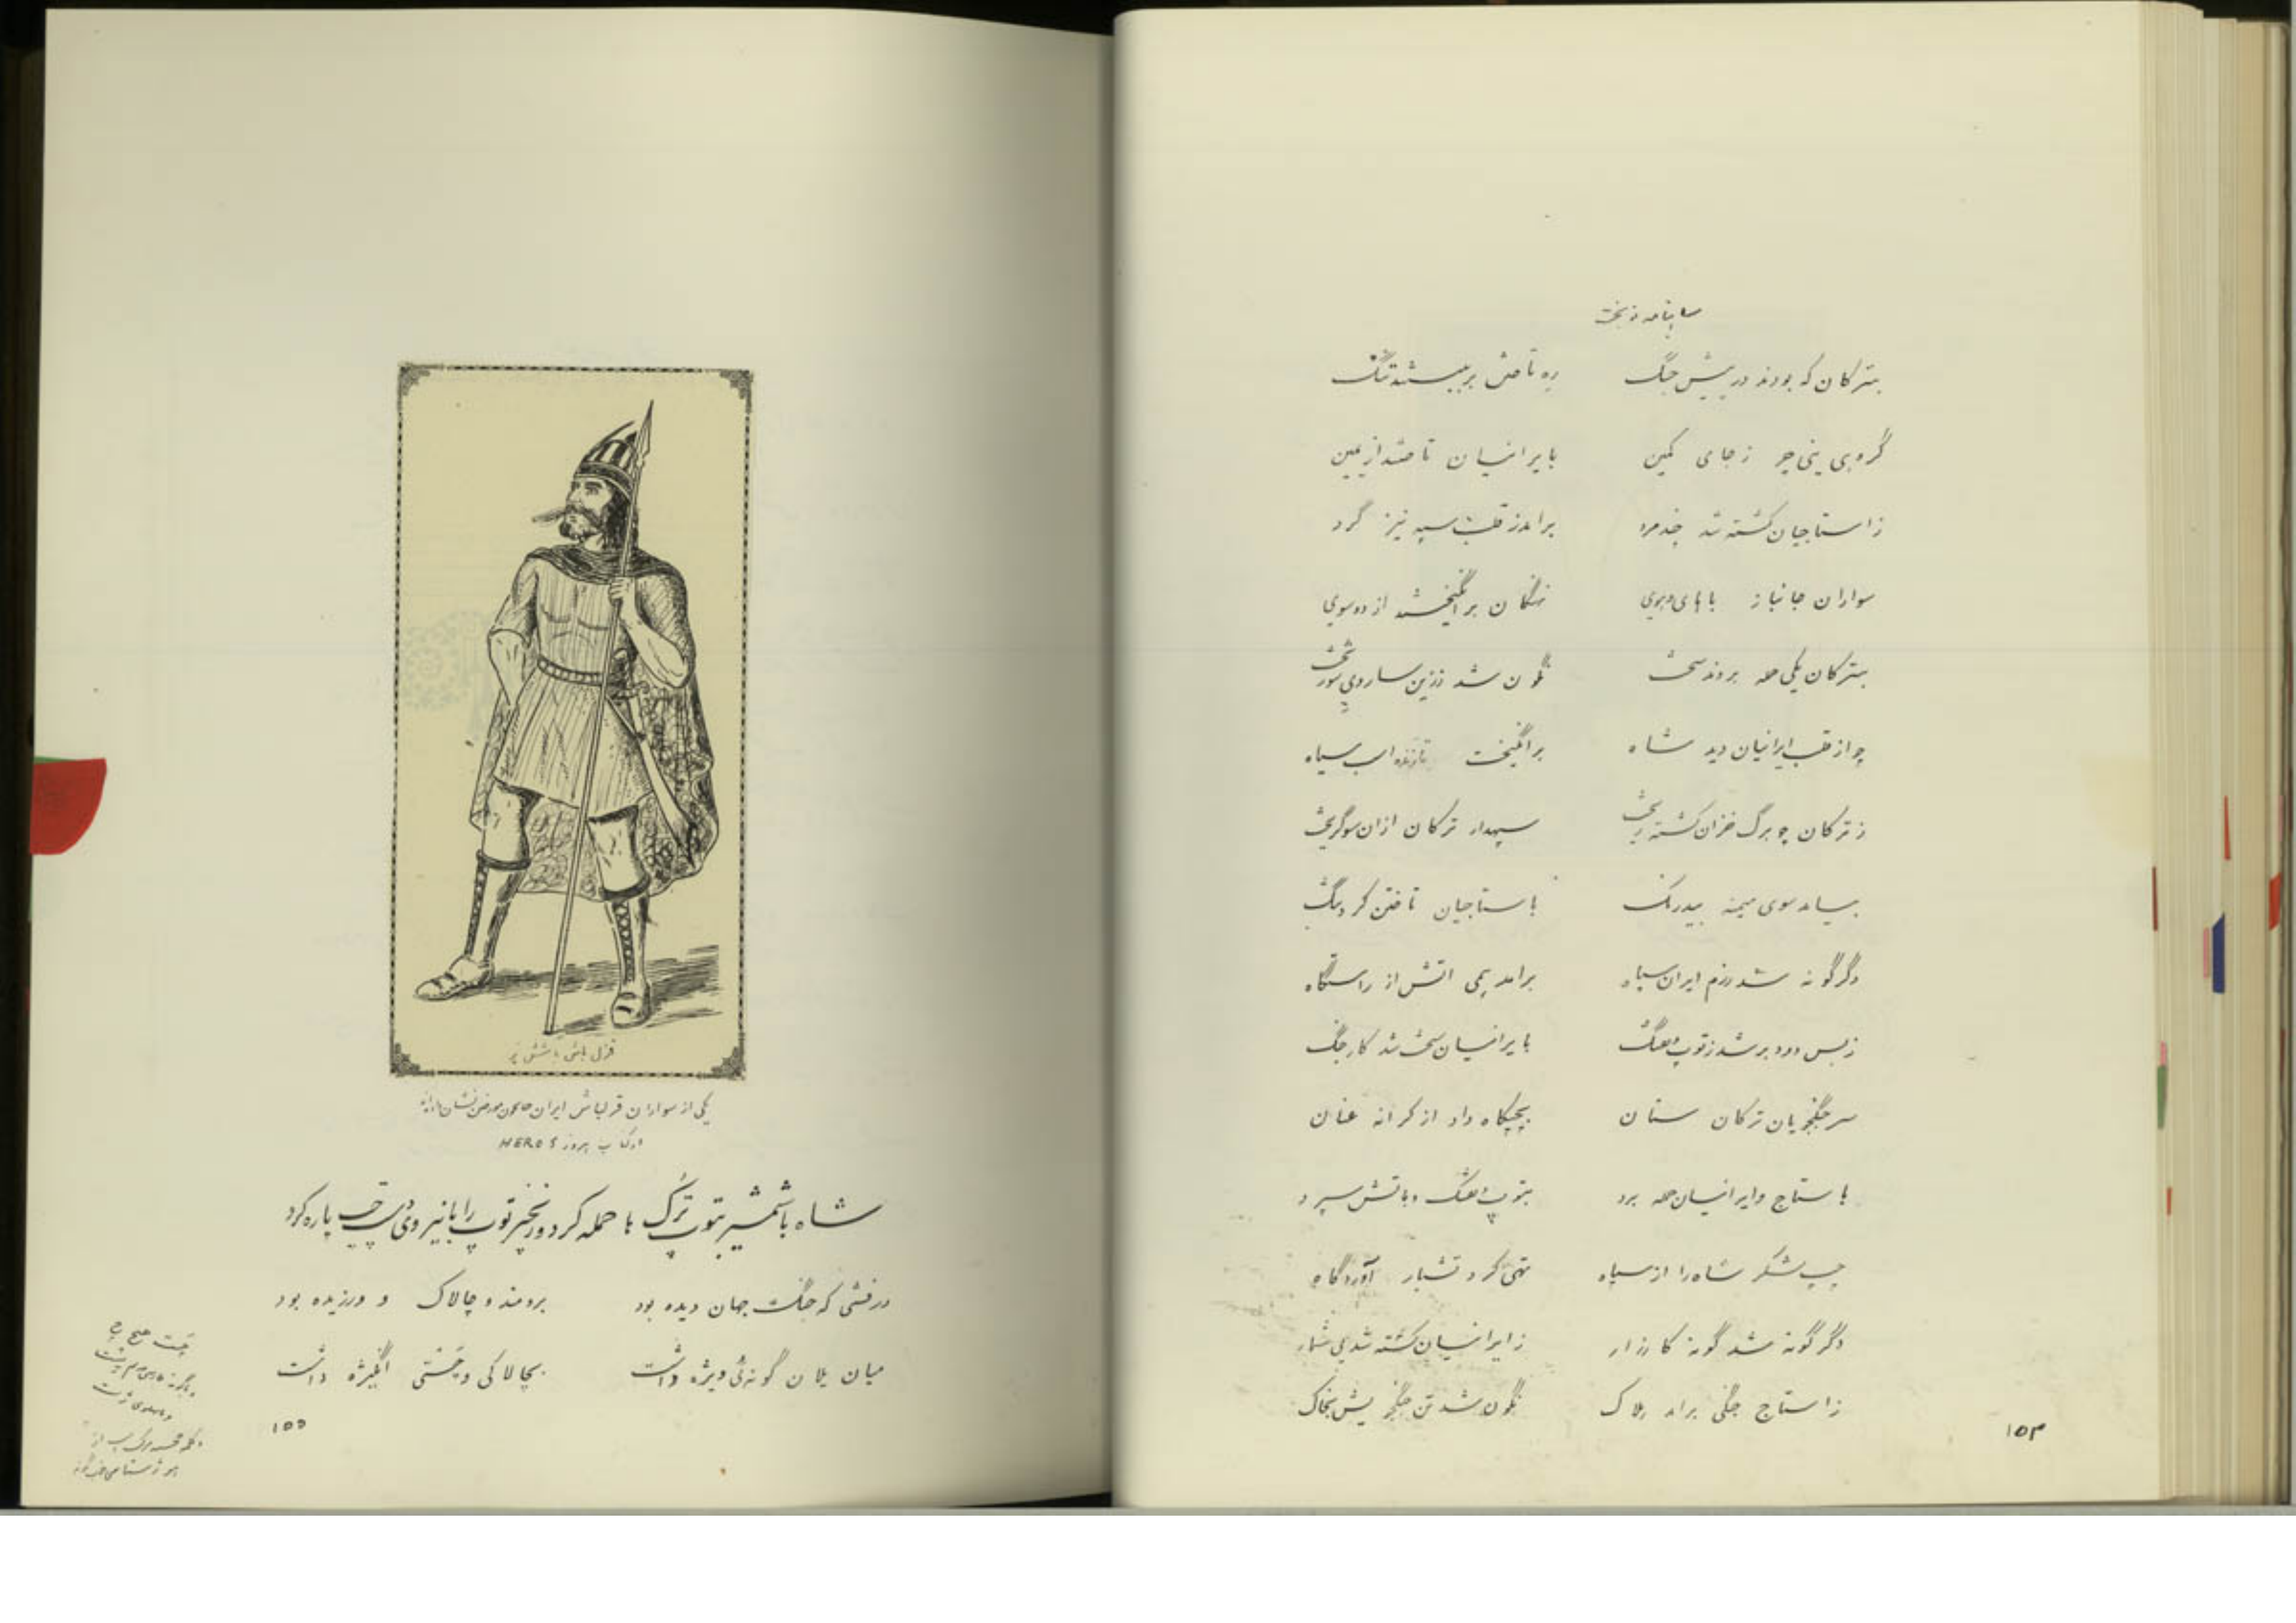 بترکان که بودند در پیش جنگ ره تاختن بر ببستند تنگ
گروهی ز جای کمین بایرانیان تاختند از یمین
ز استاجیان کشته شد چند مرد برآمد ز قلب سپه نیز گرد
سواران جانباز با های و هوی برانگیختند از دو سوی
بترکان یکی حمله بردند سخت نگون شد ززین
چو از قلب ایرانیان دید شاه برانگیخت تازنده اسب سیاه
ز ترکان چو برگ خزان کشته ریخت سپهدار ترکان ازان سو گریخت
بیامد سوی میمنه بیدرنگ باستاجیان تاختن کرد
دگرگونه شد رزم ایران سپاه برآمد همی آتش از راستگاه
ز بس دود برشد ز توپ و تفنگ بایرانیان سخت شد کار جنگ
سر جنگجویان ترکان سنان بپیچگاه داد از کرانه عنان
باستاج و ایرانیان حمله برد بتوپ و تفنگ و باتش سپرد
چپ لشکر شاه را از سپاه تهی کرد آوردگاه
دگرگونه شد گونهٔ کارزار ز ایرانیان کشته شد بی شمار
ز استاج جنگی برآمد هلاک نگون شد تن جنگجویش بخاک
۱۵۴
قزل باش با شش پر
یکی از سواران قزلباش ایران
از کتاب پیروز HEROS
شاه با شمشیر بتوپ ترک ها حمله کرد و زنجیر توپ را با نیروی دست چپ پاره کرد
درفشی که جنگ جهان دیده بود برومند و چالاک و ورزیده بود
میان یلان گونه‌ئی ویژه داشت بچالاکی و چستی انگیزه داشت
۱۵۵